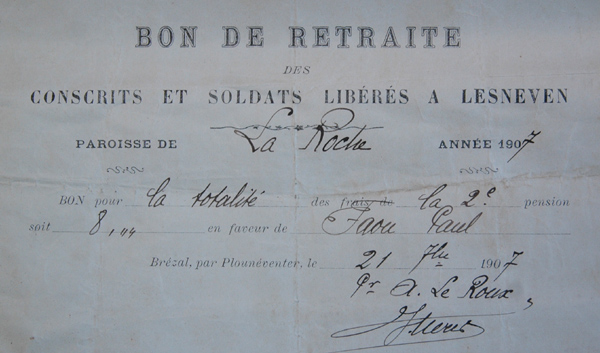 BON DE RETRAITE
DES
CONSCRITS ET SOLDATS LIBÉRÉS A LESNEVEN
PAROISSE DE La Roche ANNÉE 1907
BON pour la totalité des frais de la 2e pension
soit 8,"" en faveur de Faou Paul
Brézal, par Plounéventer, le 21 7bre 1907
Pr A. Le Roux